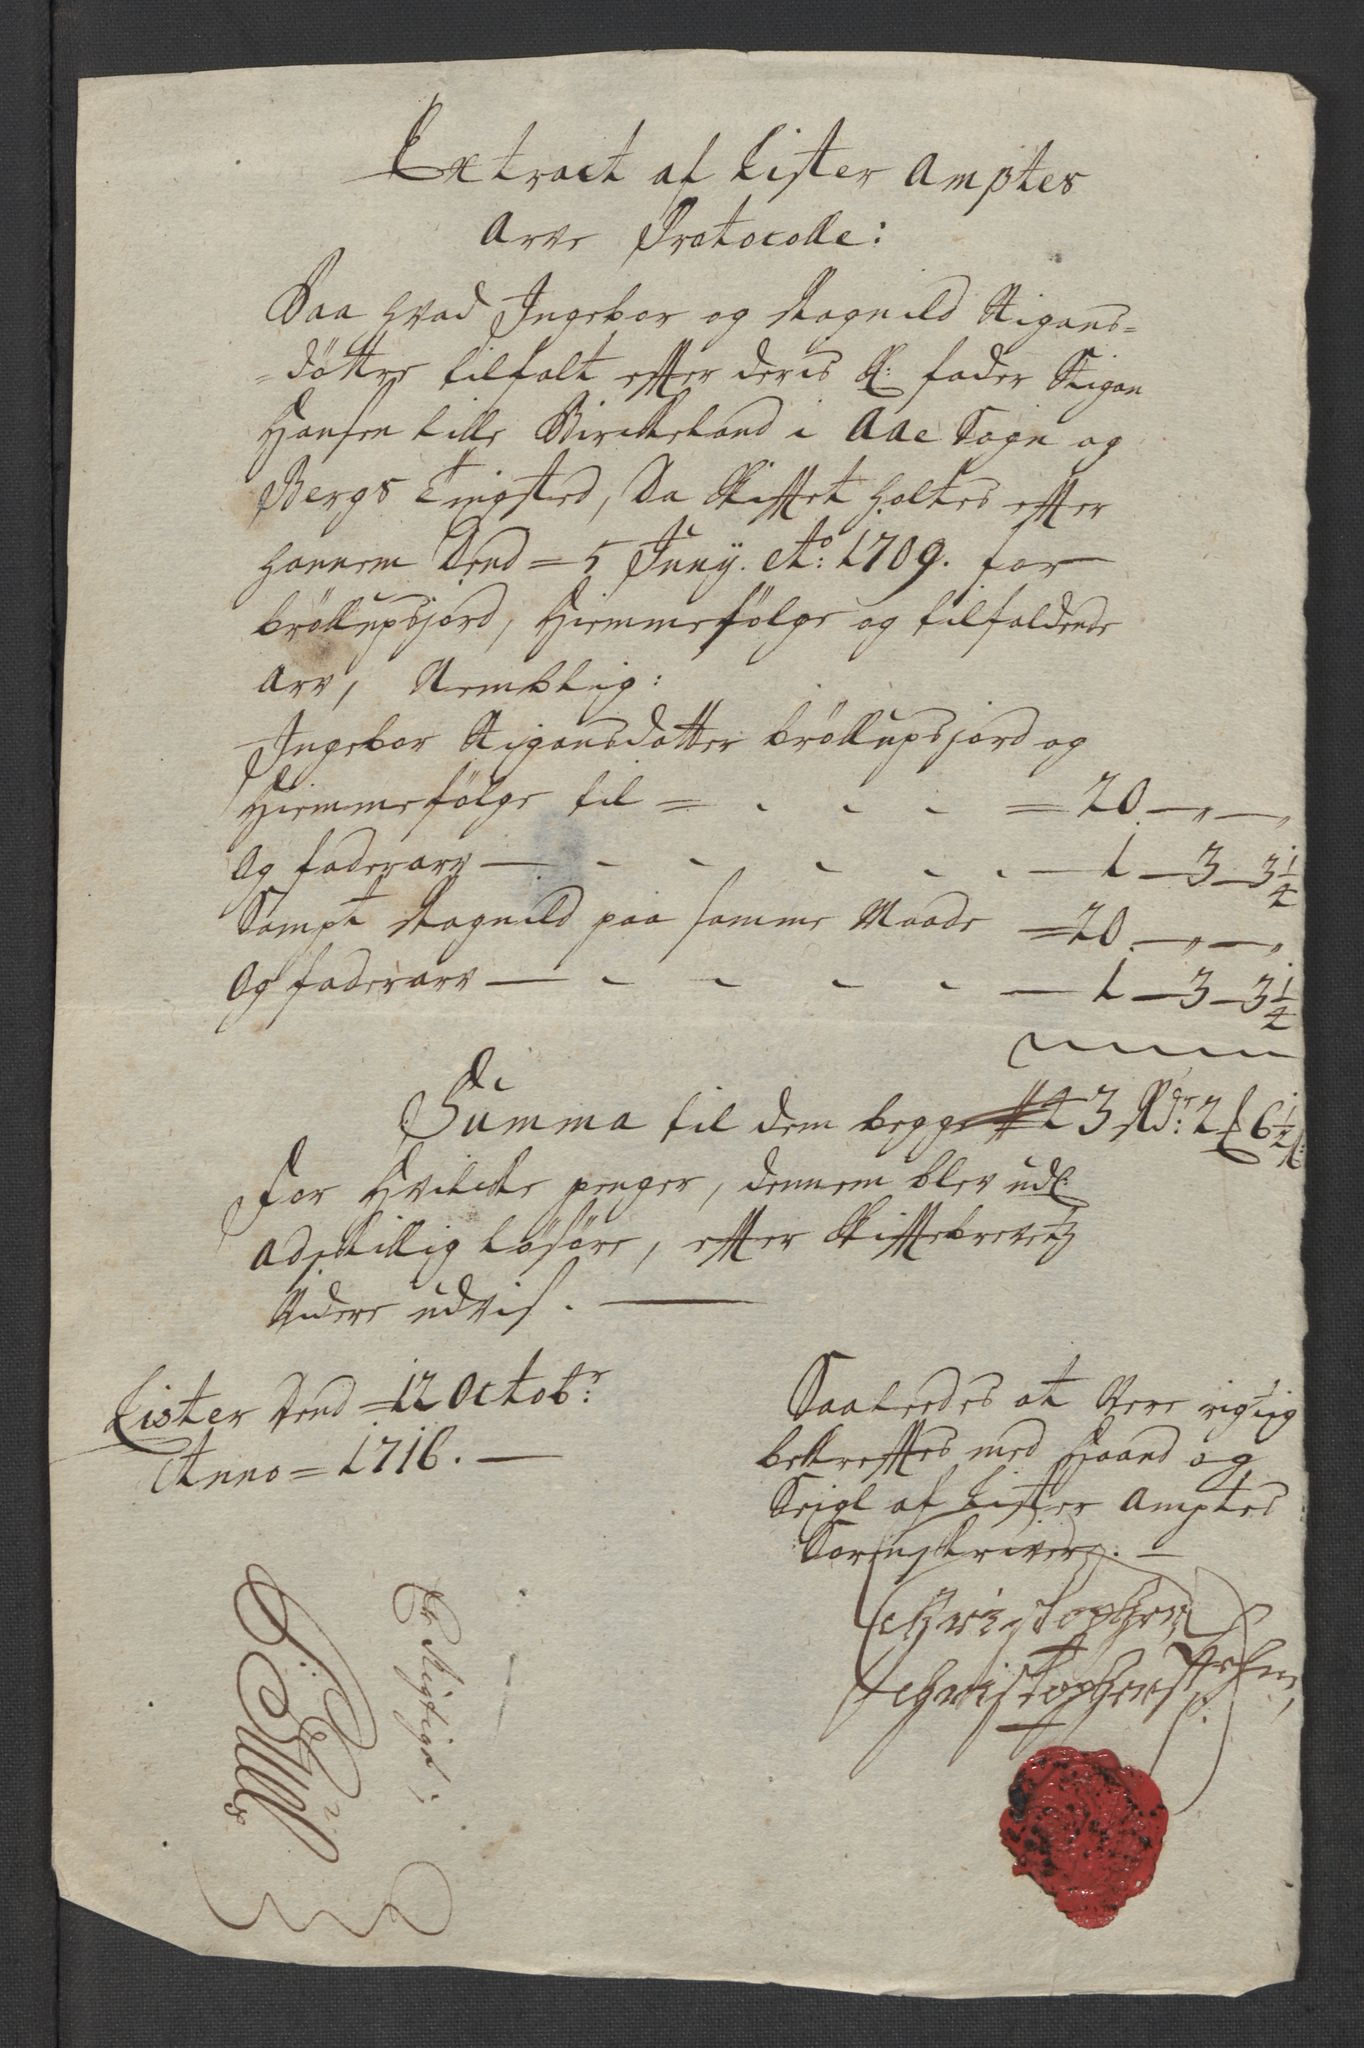 Extract af Lister Amptes
Arve Protocolle:
Paa hvad Ingebor og Ragnild Stigans=
=döttre tilfalt effter deris Sl: fader Stigan
Hansen Lille Birckeland i Aae Sogn og
Bergs Tingsted, Da Skifftet holtes effter
hannem Dend = 5 Juny. Ao: 1709. for
bröllupsjord, Hiemmefölge og tilfaldende
Arv, Nemblig:
Ingebor Stigansdatter bröllupsjord og
Hiemmefölge til = - - - = 20 — „ — „
Og faderarv — - - - - - — 1 — 3 — 3 1/4
Sampt Ragnild paa samme Maade = 20 — „ — „
Og faderarv — - - - - — 1 — 3 — 3 1/4
Summa til dem begge 43 Rdr: 2 ß 6 1/2 s:
For Hvilcke penger, dennem blev udl:
adskillig Løsöre, effter Skifftebrevetz
Videre udvis. —
Lister Dend = 12 Octobr:
Anno = 1716. —
Saaledes at Vere rigtig
bekrefftes med Haand og
Seigl af Lister Amptes
Sorenskriver. —
Christophen
Christophers:
Er Rigtigt;